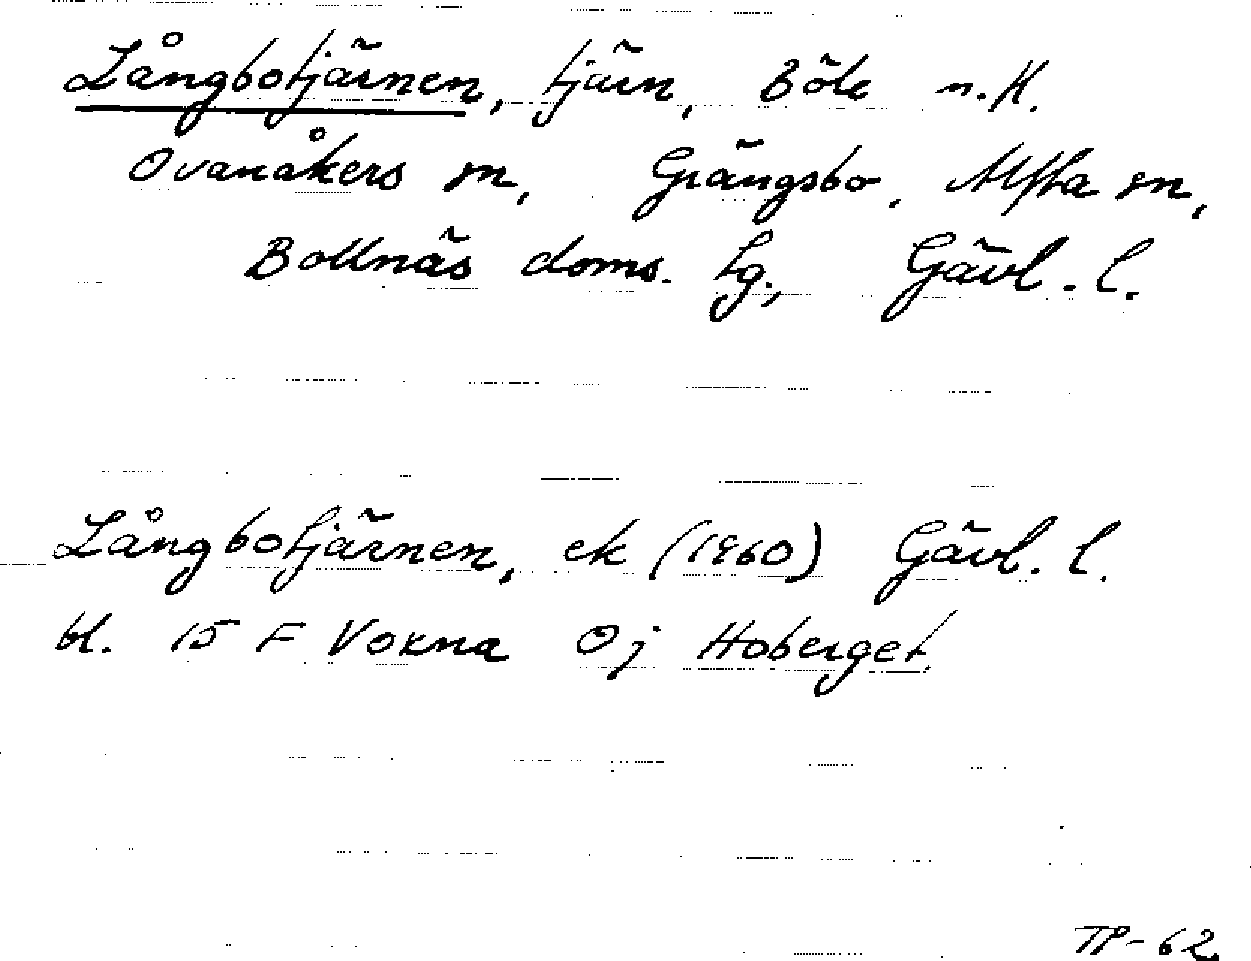 Långbotjärnen, tjärn, Böle n.H.
Ovanåkers sn, Grängsbo, Alfta sn,
Bollnäs doms. tg., Gävl. l.
Långbotjärnen, ek (1960) Gävl. l.
bl. 15 F Voxna Oj Hoberget
TP-62